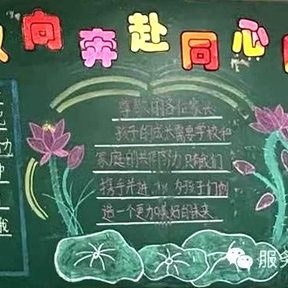 双向奔赴同心
尊敬的各位家长
孩子的成长需要学校和
家庭的共同努力只有我们
携手并进 为孩子们创
造一个更加美好的未来
我
服务